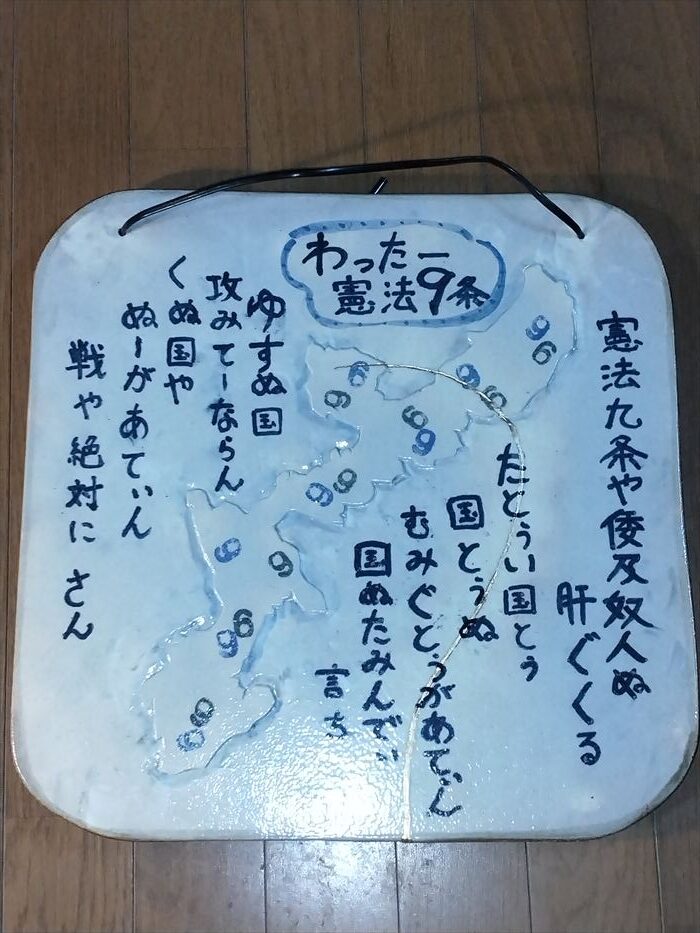 わったー
憲法9条
憲法九条や倭及奴人ぬ
肝ぐくる
たとうい国とぅ
国とうぬ
むみぐとぅがあてぃん
国ぬたみんでぃ
言ち
ゆすぬ国
攻みてーならん
くぬ国や
ぬーがあてぃん
戦や絶対に さん